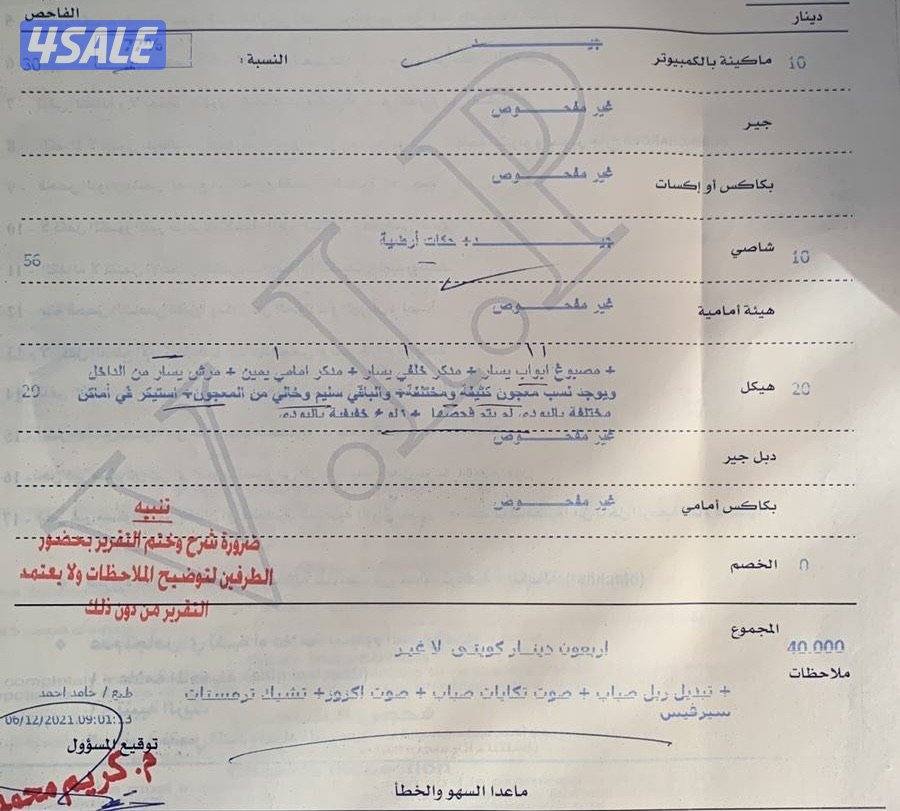 دينار الفاحص
4SALE
10 ماكينة بالكمبيوتر جيد النسبة : 30
جير غير مفحوص
بكاكس أو إكسات غير مفحوص
10 شاصي جيد + حكات أرضية 56
هيئة أمامية غير مفحوص
20 هيكل 29
+ مصبوغ ابواب يسار + مدكر خلفي يسار + مدكر امامي يمين + مرش يسار من الداخل
ويوجد نسب معجون كثيفة ومختلفة + والباقي سليم وخالي من المعجون + استيكر في أماكن
مختلفة بالبودي لم يتم فحصها + خفيفية بالبودي
دبل جير غير مفحوص
بكاكس أمامي غير مفحوص
0 الخصم
تنبيه
ضرورة شرح وختم التقرير بحضور
الطرفين لتوضيح الملاحظات ولا يعتمد
التقرير من دون ذلك
المجموع
40.000 اربعون دينار كويتي لا غير
ملاحظات
+ تبديل ربل صباب + صوت تكايات صباب + صوت اكزوز + تشيك ترمستات
سيرفيس
طبع / حامد احمد
06/12/2021.09:01:13
توقيع المسؤول
م. كريم محمد
ماعدا السهو والخطأ